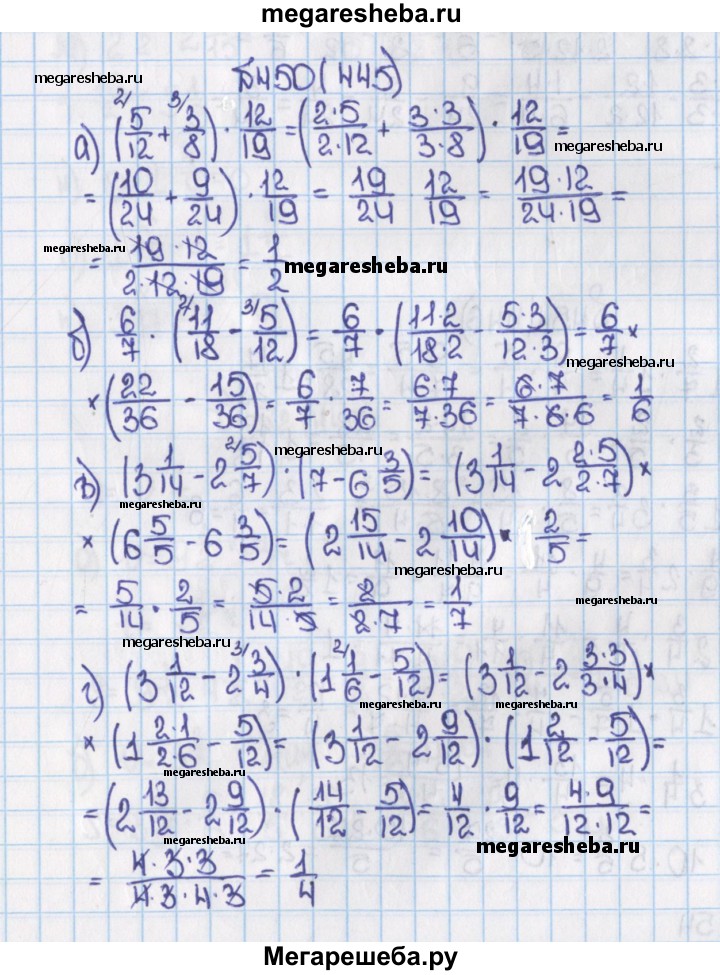 megaresheba.ru
megaresheba.ru
№450(445)
megaresheba.ru
а) (2/ 5/12 + 3/ 3/8) · 12/19 = (2·5/2·12 + 3·3/3·8) · 12/19 =
megaresheba.ru
= (10/24 + 9/24) · 12/19 = 19/24 12/19 = 19·12/24·19 =
megaresheba.ru
= 19·12/2·12·19 = 1/2
megaresheba.ru
б) 6/7 · (2/ 11/18 - 3/ 5/12) = 6/7 · (11·2/18·2 - 5·3/12·3) = 6/7 ×
megaresheba.ru
× (22/36 - 15/36) = 6/7 · 7/36 = 6·7/7·36 = 6·7/7·6·6 = 1/6
megaresheba.ru
в) (3 1/14 - 2 2/ 5/7) · (7 - 6 3/5) = (3 1/14 - 2 2·5/2·7) ×
megaresheba.ru
× (6 5/5 - 6 3/5) = (2 15/14 - 2 10/14) · 2/5 =
megaresheba.ru
= 5/14 · 2/5 = 5·2/14·5 = 2/2·7 = 1/7
megaresheba.ru
megaresheba.ru
г) (3 1/12 - 2 3/ 3/4) · (1 2/ 1/6 - 5/12) = (3 1/12 - 2 3·3/3·4) ×
megaresheba.ru
megaresheba.ru
× (1 2·1/2·6 - 5/12) = (3 1/12 - 2 9/12) · (1 2/12 - 5/12) =
megaresheba.ru
= (2 13/12 - 2 9/12) · (14/12 - 5/12) = 4/12 · 9/12 = 4·9/12·12 =
megaresheba.ru
megaresheba.ru
= 4·3·3/4·3·4·3 = 1/4
Мегарешеба.ру